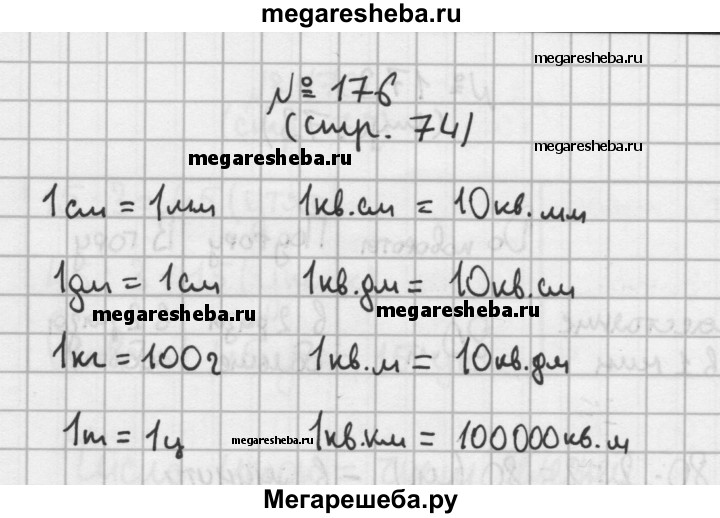 megaresheba.ru
megaresheba.ru
№ 176
(стр. 74)
megaresheba.ru
megaresheba.ru
1см = 1мм 1кв.см = 10кв.мм
1дм = 1см 1кв.дм = 10кв.см
megaresheba.ru megaresheba.ru
1кг = 100г 1кв.м = 10кв.дм
1т = 1ц megaresheba.ru 1кв.км = 100000кв.м
megaresheba.ru
Мегарешеба.ру